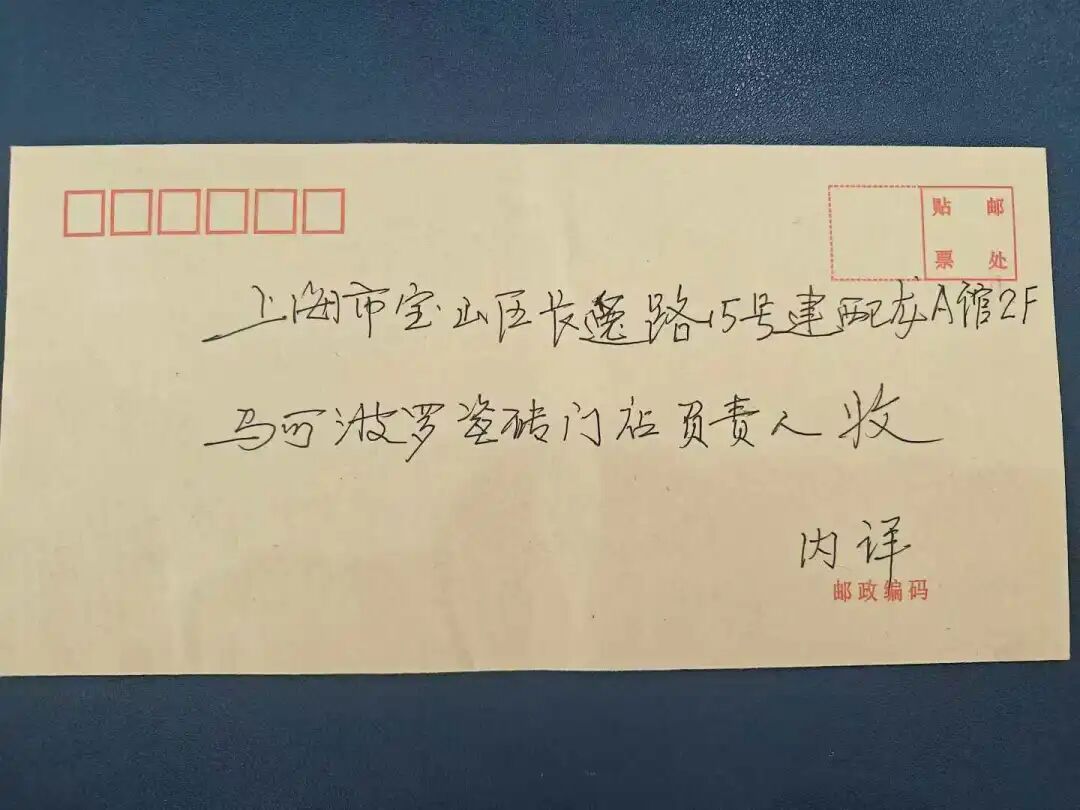 贴 邮
票 处
上海市宝山区长逸路15号建配龙A馆2F
马可波罗瓷砖门店负责人 收
内详
邮政编码